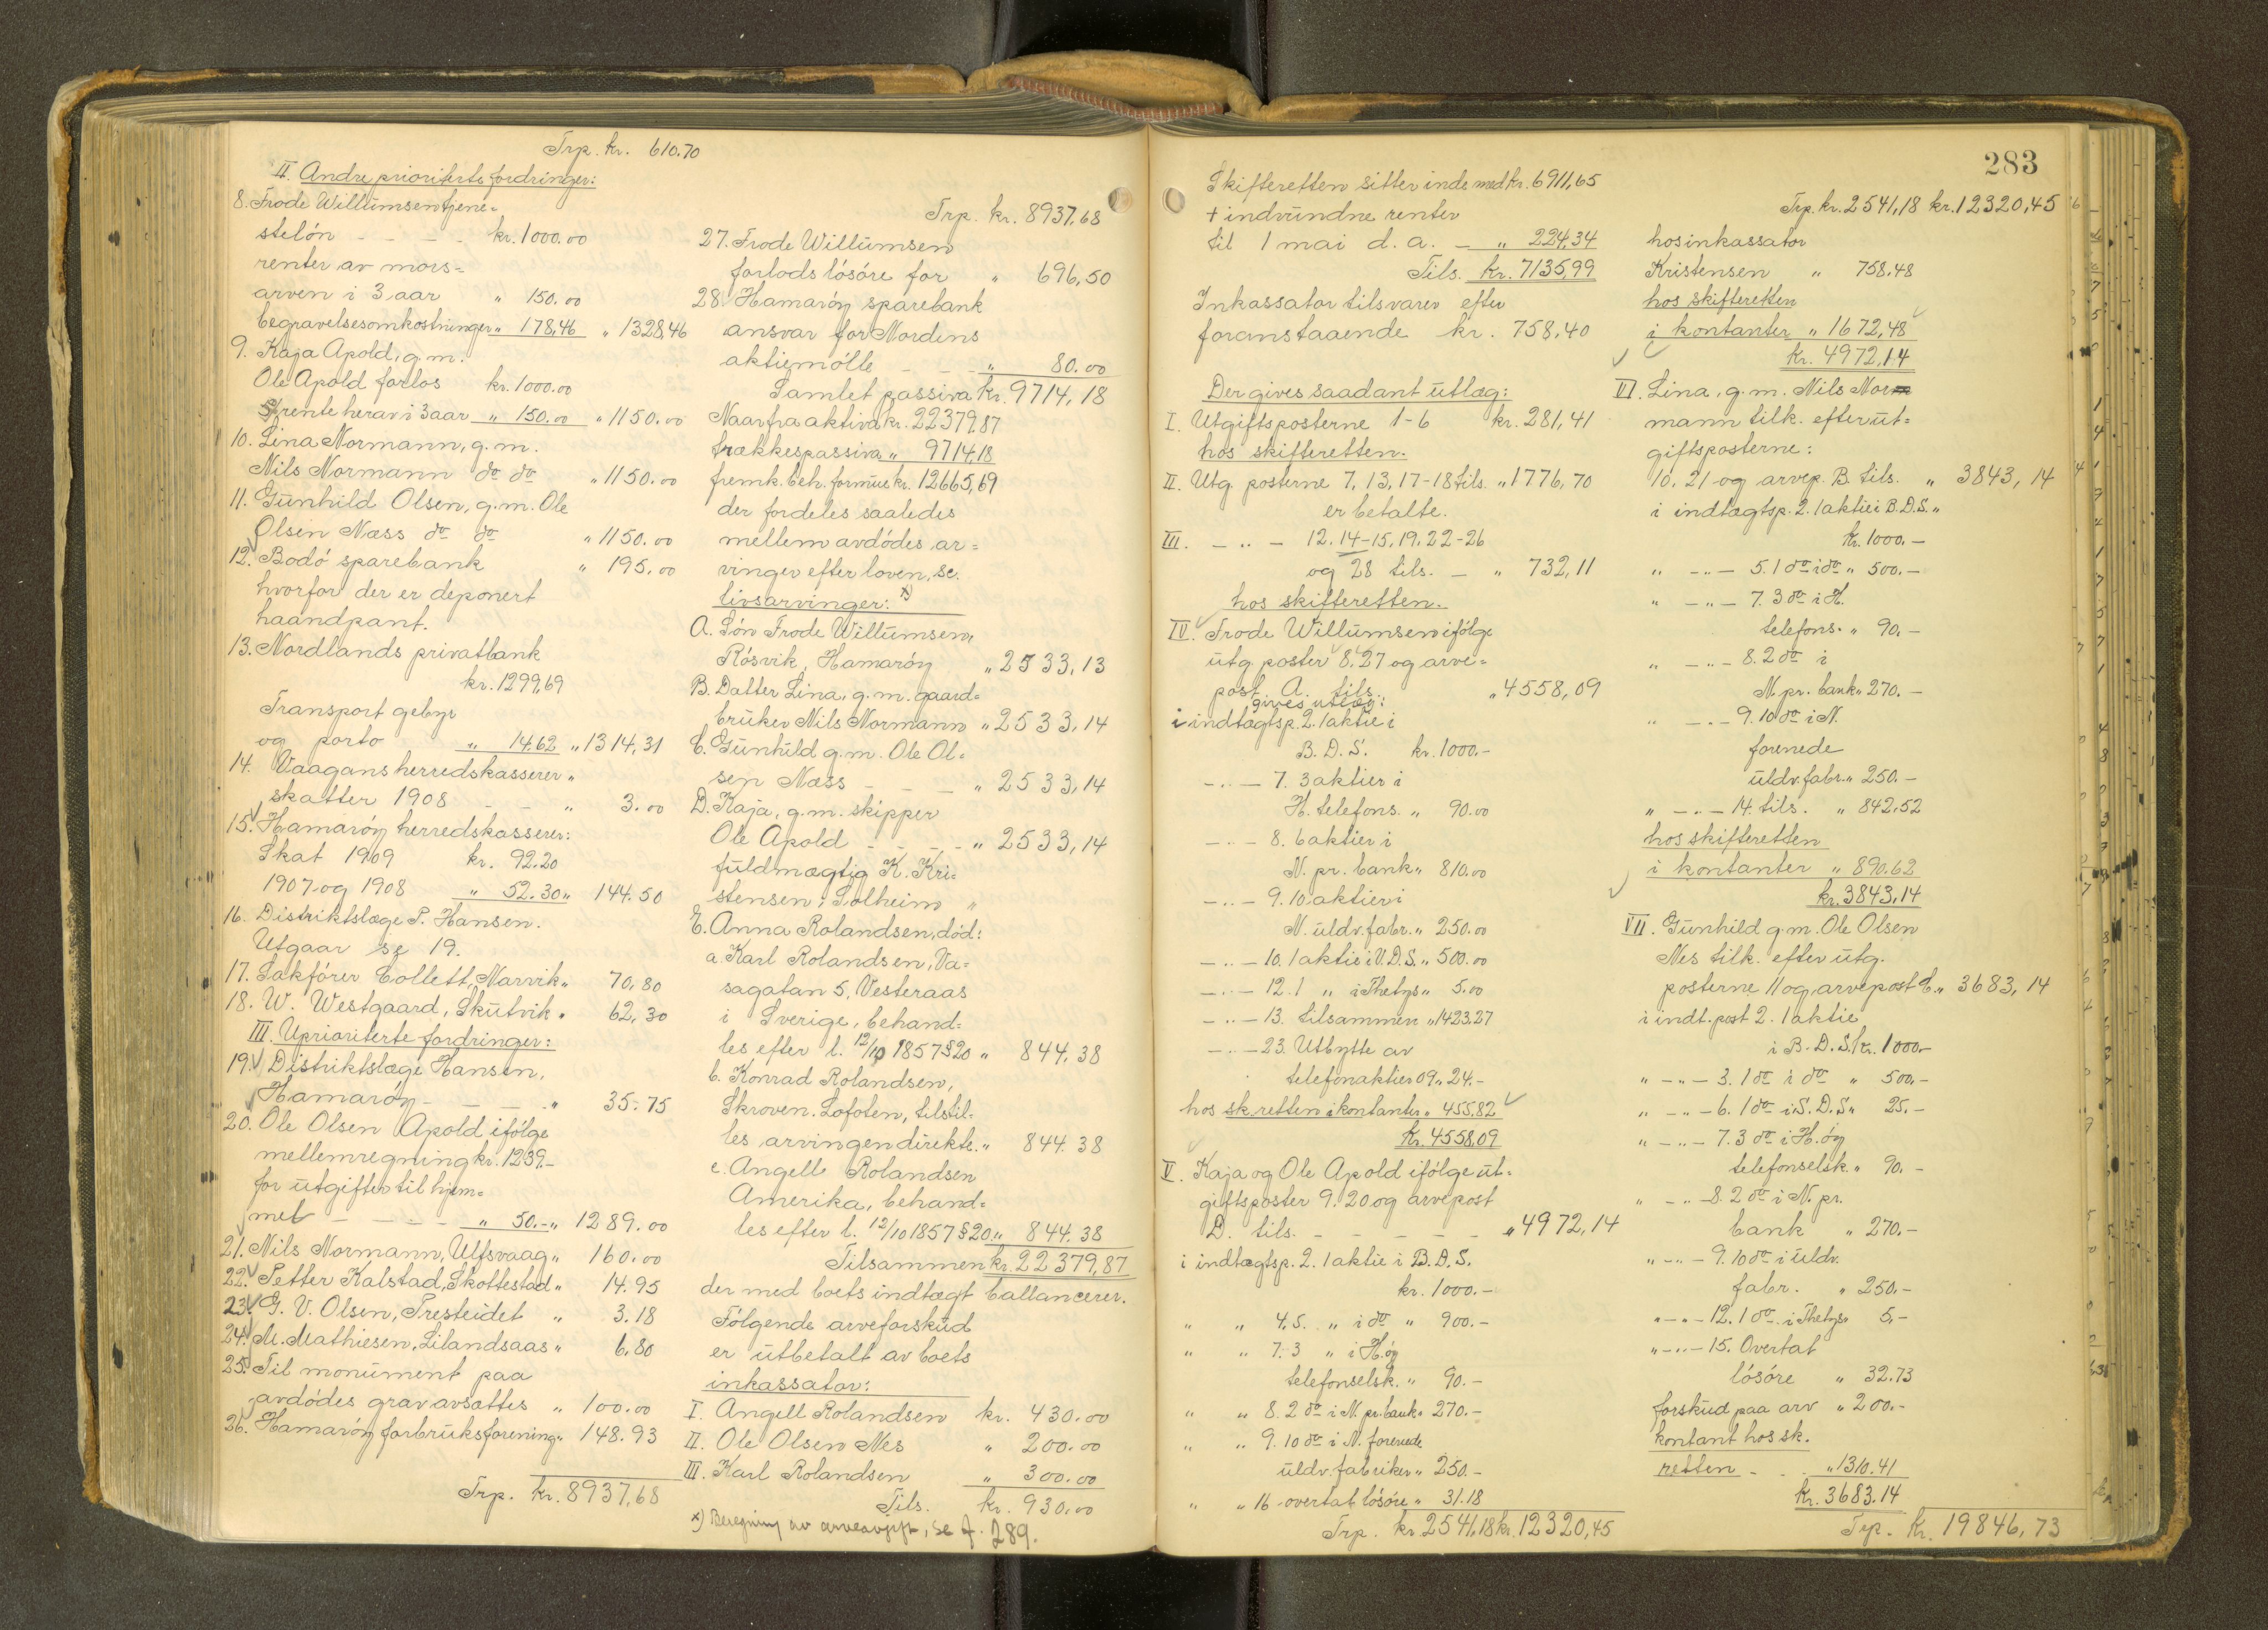 Trp. kr. 610.70
II. Andre prioriterte fordringer:
8. Frode Willumsen tjene=
steløn - - - - kr. 1000.00
renter av mors=
arven i 3 aar " 150.00
begravelsesomkostninger " 178,46 " 1328,46
9. Kaja Apold, g.m.
Ole Apold forlos kr. 1000.00
rente herav i 3 aar " 150.00 " 1150.00
10. Lina Normann, g.m.
Nils Normann do do " 1150.00
11. Gunhild Olsen, g.m. Ole
Olsen Næss do do " 1150.00
12. Bodø sparebank " 195.00
hvorfor der er deponert
haandpant.
13. Nordlands privatbank
kr. 1299,69
Transport gebyr
og porto " 14,62 " 1314,31
14. Vaagans herredskasserer "
skatter 1908 - - " 3.00
15. Hamarøy herredskasserer:
Skat 1909 kr. 92.20
1907 og 1908 " 52.30 " 144.50
16. Distriktslæge P. Hansen.
Utgaar se 19.
17. Sakfører Collett, Narvik " 70,80
18. W. Westgaard, Skutvik " 62,30
III. Uprioriterte fordringer:
19. Distriktslæge Hansen,
Hamarøy - - - - " 35.75
20. Ole Olsen Apold ifølge
mellemregning kr. 1239.-
for utgifter til hjem=
met - - - - " 50.- " 1289.00
21. Nils Normann, Ulfsvaag " 160.00
22. Petter Kalstad, Skottestad " 14.95
23. G. V. Olsen, Presteidet " 3.18
24. M. Mathiesen, Lilandsaas " 6.80
25. Til monument paa
avdødes grav avsattes " 100.00
26. Hamarøy forbruksforening " 148.93
Trp. kr. 8937,68
Trp. kr. 8937,68
27. Frode Willumsen
forlods løsøre for " 696,50
28. Hamarøy sparebank
ansvar for Nordens
aktiemølle - - - " 80.00
Samlet passiva kr. 9714,18
Naar fra aktiva kr. 22379,87
trækkes passiva " 9714,18
fremk. beh. formue kr. 12665,69
der fordeles saaledes
mellem avdødes ar=
vinger efter loven, se.
livsarvinger: x)
A. Søn Frode Willumsen,
Røsvik, Hamarøy " 2533,13
B. Datter Lina, g.m. gaard=
bruker Nils Normann " 2533,14
C. Gunhild g.m. Ole Ol=
sen Næss - - - " 2533,14
D. Kaja, g.m. skipper
Ole Apold - - - - " 2533,14
fuldmægtig K. Kri=
stensen, Solheim "
E. Anna Rolandsen, død:
a. Karl Rolandsen, Va=
sagatan 5, Vesteraas
i Sverige, behand=
les efter l. 12/10 1857 § 20 " 844,38
b. Konrad Rolandsen,
Skroven. Lofoten, tilstil=
les arvingen direkte. " 844.38
c. Angell Rolandsen
Amerika, behand=
les efter l. 12/10 1857 § 20 " 844.38
Tilsammen kr. 22379,87
der med boets indtægt ballancerer.
Følgende arveforskud
er utbetalt av boets
inkassator:
I. Angell Rolandsen kr. 430.00
II. Ole Olsen Nes " 200.00
III. Karl Rolandsen " 300.00
Tils. kr. 930.00
x) Beregning av arveavgift, se f. 289.
283
Skifteretten sitter inde med kr. 6911,65
+ indvundne renter
til 1 mai d. a. - " 224,34
Tils. kr. 7135,99
Inkassator tilsvarer efter
foranstaaende kr. 758,40
Der gives saadant utlæg:
I. Utgiftsposterne 1-6 kr. 281,41
hos skifteretten.
II. Utg. posterne 7, 13, 17-18 tils. " 1776,70
er betalte.
III. - " - 12. 14-15, 19. 22-26
og 28 tils. - " 732,11
hos skifteretten.
IV. Frode Willumsen ifølge
utg. poster 8. 27 og arve=
post. A. tils. " 4558,09
gives utlæg:
i indtægtsp. 2. 1 aktie i
B. D. S. kr. 1000.-
- " - 7. 3 aktier i
H. telefons. " 90.00
- " - 8. 6 aktier i
N. pr. bank " 810.00
- " - 9. 10 aktier i
N. uldv. fabr. " 250.00
- " - 10. 1 aktie i V. D. S. " 500.00
- " - 12. 1 " i Thetys " 5.00
- " - 13. tilsammen " 1423,27
- " - 23. Utbytte av
telefonaktier 09 " 24.-
hos sk. retten i kontanter " 455,82
Kr. 4558,09
V. Kaja og Ole Apold ifølge ut=
giftsposter 9. 20 og arvepost
D. tils. - - - - - " 4972,14
i indtægtsp. 2. 1 aktie i B. D. S.
kr. 1000.-
" " 4. 5. " i do " 900.-
" " 7. 3 " i H.øy
telefonselsk. " 90.-
" " 8. 2 do i N. pr. bank " 270.-
" " 9. 10 do i N. forenede
uldv. fabriker " 250.-
" " 16 overtat løsøre " 31.18
Trp. kr. 2541,18 kr. 12320,45
Trp. kr. 2541,18 kr. 12320,45
hos inkassator
Kristensen " 758.48
hos skifteretten
i kontanter " 1672,48
kr. 4972,14
VI. Lina, g.m. Nils Nor
mann tilk. efter ut=
giftsposterne:
10. 21 og arvep. B. tils. " 3843,14
i indtægtsp. 2. 1 aktie i B. D. S. "
kr. 1000.-
" - " - 5. 1 do i do " 500.-
" - " - 7. 3 do i H.
telefons. " 90.-
" - " - 8. 2 do i
N. pr. bank " 270.-
" - " - 9. 10 do i N.
forenede
uldv. fabr. " 250.-
" - " - 14. tils. " 842,52
hos skifteretten
i kontanter " 890.62
kr. 3843,14
VII. Gunhild g.m. Ole Olsen
Nes tilk. efter utg.
posterne 11 og arvepost C. " 3683,14
i indt. post 2. 1 aktie
i B. D. S. kr. 1000.-
" - " - 3. 1 do i do " 500.-
" - " - 6. 1 do i S. D. S. " 25.-
" - " - 7. 3 do i H.øy
telefonselsk. " 90.-
" - " - 8. 2 do i N. pr.
bank " 270.-
" - " - 9. 10 do i uldv.
fabr. " 250.-
" - " - 12. 1 do i Thetys " 5.-
" - " - 15. Overtat
løsøre " 32.73
forskud paa arv " 200.-
kontant hos sk.
retten - - " 1310.41
kr. 3683.14
Trp. kr. 19846,73